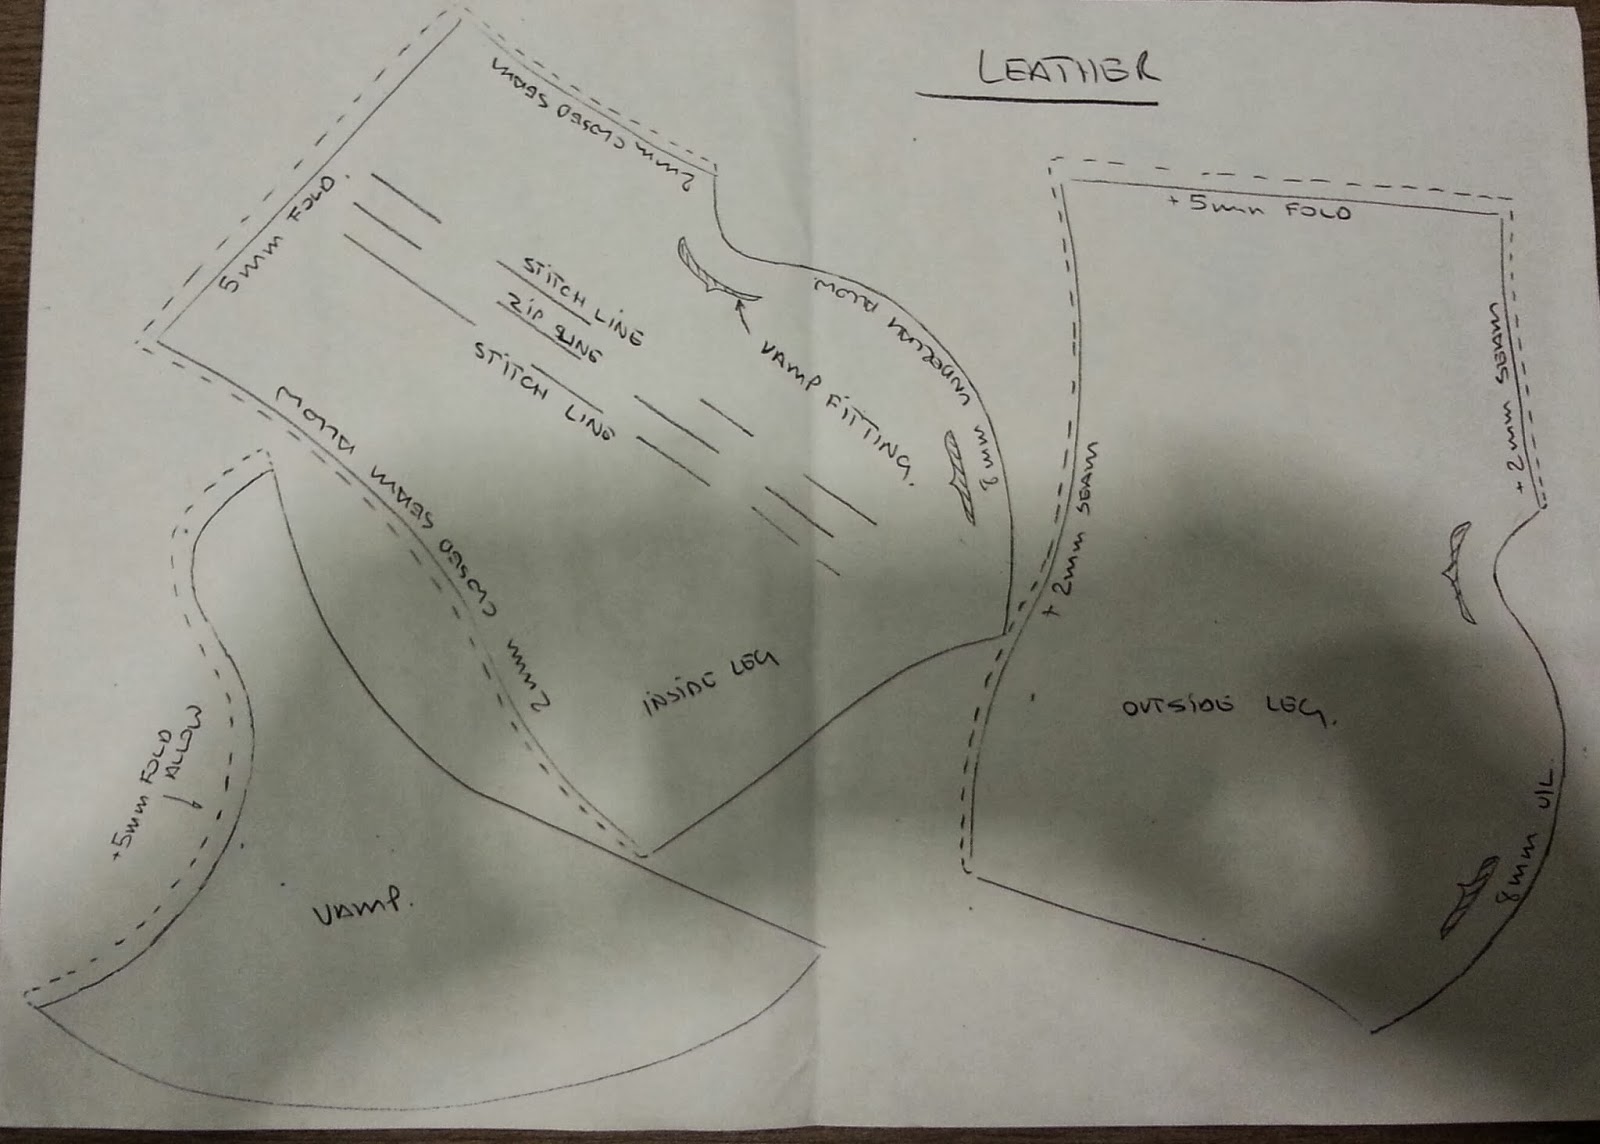 LEATHER
2mm CLOSED SEAM
5mm FOLD.
+ 5mm FOLD
STITCH LINE
ZIP LINE
STITCH LINE
VAMP FITTING.
8mm UNDERLAY ALLOW
2mm CLOSED SEAM ALLOW
+ 2mm SEAM
+ 2mm SEAM
INSIDE LEG
OUTSIDE LEG.
+5mm FOLD
ALLOW
8mm U/L.
VAMP.